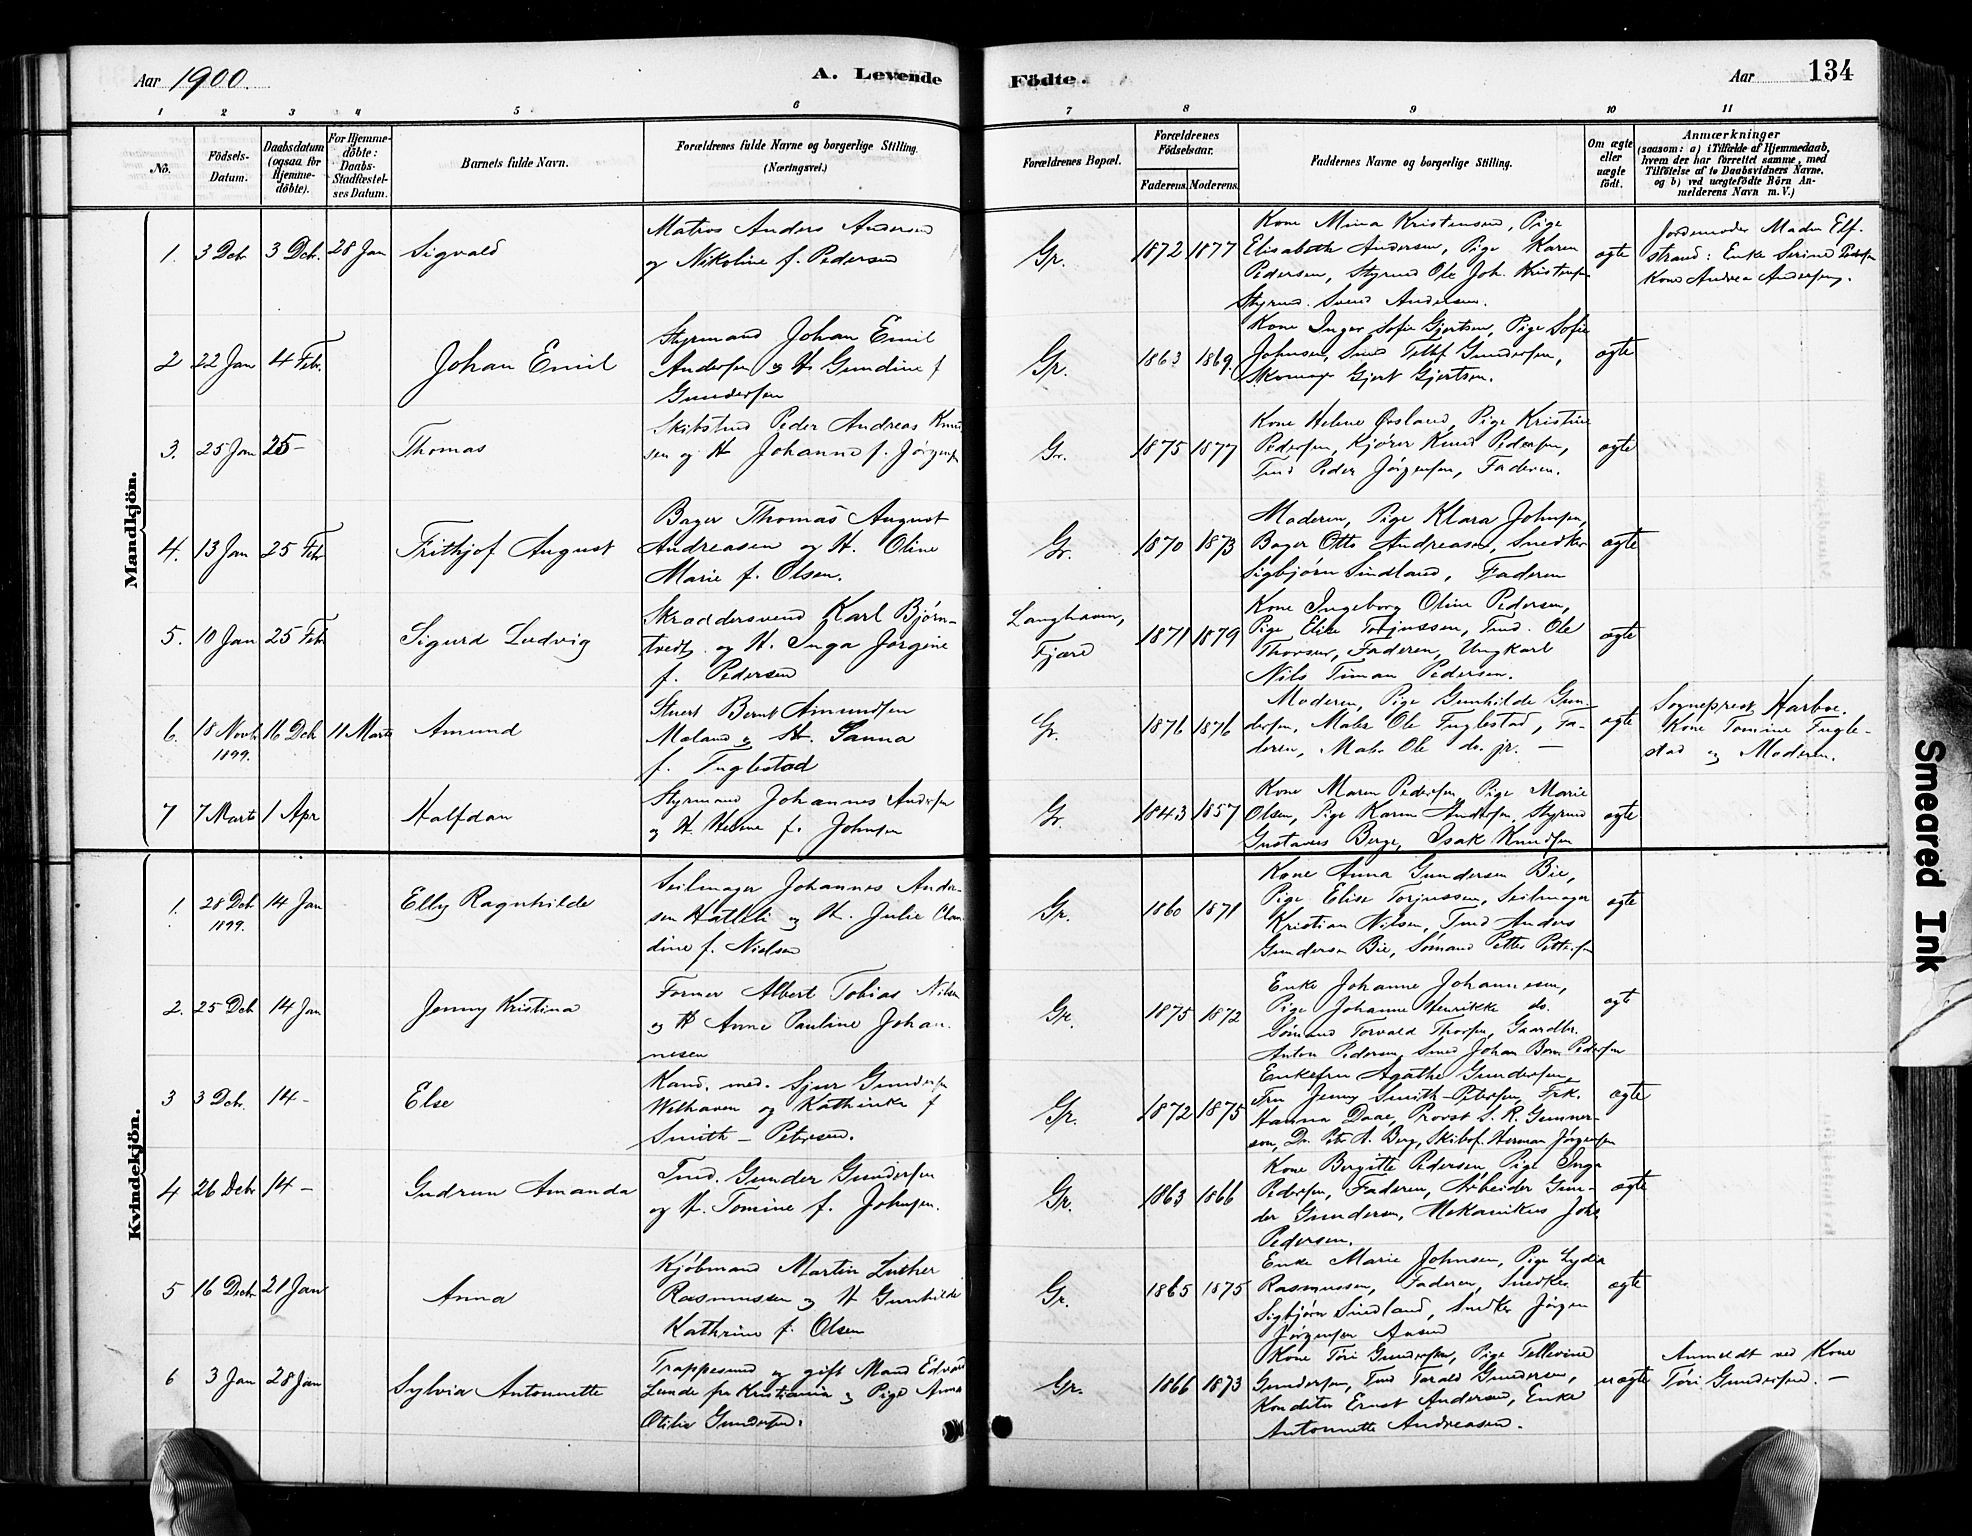 Aar 1900.
A. Levende
Födte.
Aar
134
1 2 3 4 5 6 7 8 9 10 11
No.
Födsels-
Datum.
Daabsdatum
(ogsaa for
Hjemme-
döbte).
For Hjemme-
döbte:
Daabs-
Stadfæstel-
ses Datum.
Barnets fulde Navn.
Forældrenes fulde Navne og borgerlige Stilling.
(Næringsvei.)
Forældrenes Bopæl.
Forældrenes
Födselsaar.
Faderens. Moderens.
Faddernes Navne og borgerlige Stilling.
Om ægte
eller
uægte
födt.
Anmærkninger
(saasom: a) i Tilfælde af Hjemmedaab,
hvem der har forrettet samme, med
Tilföielse af to Daabsvidners Navne,
og b) ved uægtefödte Börn An-
melderens Navn m. V.)
Mandkjön.
1. 3 Deb. 3 Deb. 28 Jan Sigvald
Matros Anders Andersen
og Nikoline f. Pedersen
Gr. 1872 1877
Kone Mina Kristensen, Pige
Elisabeth Andersen, Pige Karen
Pedersen, Styrmd Ole Joh. Kristensen
Styrmd. Svend Andersen.
ægte
Jordemoder Madm Elf-
strand: Enke Serine Pedersen
Kone Andrea Andersen.
2 22 Jan 4 Febr. Johan Emil
Styrmand Johan Emil
Andersen og H. Gundine f
Gundersen
Gr. 1863 1869.
Kone Inger Sofie Gjertsen, Pige Sofie
Johnsen, Smed Tellef Gundersen,
Skomager Gjert Gjertsen.
ægte
3. 25 Jan 25 - Thomas
Skibstmd Peder Andreas Knud
sen og H Johanne f. Jörgensen
Gr. 1875 1877
Kone Helene Øvsland, Pige Kristine
Pedersen, Kjörer Knud Pedersen,
Tmd Peder Jörgensen, Faderen.
ægte
4. 13 Jan 25 Feb Frithjof August
Bager Thomas August
Andreasen og H. Oline
Marie f. Olsen.
Gr. 1870 1873
Moderen, Pige Klara Johnsen,
Bager Otto Andreasen, Snedker
Sigbjörn Sindland, Faderen
ægte
5. 10 Jan 25 Feb Sigurd Ludvig
Skræddersvend Karl Björn-
tvedt og H. Inga Jörgine
f. Pedersen
Langhaven,
Fjære
1871 1879
Kone Ingeborg Oline Pedersen,
Pige Elise Torjussen, Tmd. Ole
Thorsen, Faderen, Ungkarl
Nils Timan Pedersen.
ægte
6. 18 Novbr 1899. 16 Deb 11 Marts Amund
Stuert Bernt Amundsen
Mæland og H. Sanna
f. Fuglestad
Gr. 1876 1876
Moderen, Pige Gunhilde Gun-
dersen, Maler Ole Fuglestad, Fa-
deren, Maler Ole do. jr. —
ægte
Sogneprest Harboe.
Kone Tomine Fugle-
stad og Moderen.
7 7 Marts 1 Apr Halfdan
Styrmand Johannes Andersen
og H. Helene f. Johnsen
Gr. 1843 1857
Kone Maren Pedersen, Pige Marie
Olsen, Pige Karen Andersen, Styrmd
Gustavus Berge, Isak Knudsen
ægte
Kvindekjön.
1. 28 Deb 1899. 14 Jan Elly Ragnhilde
Seilmager Johannes Ander-
sen Hatteli og H. Julie Clau-
dine f. Nielsen
Gr. 1860 1871
Kone Anna Gundersen Bie,
Pige Elise Torjussen, Seilmager
Kristian Nilsen, Tmd Anders
Gundersen Bie, Sömand Petter Pettersen
ægte
2. 25 Deb 14 Jan Jenny Kristina
Former Albert Tobias Nilsen
og H Anne Pauline Johan-
nesen
Gr. 1875 1872
Enke Johanne Johannesen,
Pige Johanne Henrikke do.
Sömand Torvald Thorsen, Gaardbr.
Anton Pedersen, Smed Johan Bern Pedersen
ægte
3 3 Deb. 14 - Else
Kand. med. Sjur Gundersen
Welhaven og Kathinka f
Smith - Petersen.
Gr. 1872 1875
Enkefru Agathe Gundersen,
Fru Jenny Smith-Petersen, Frk.
Hanna Daae, Provst S. R. Gunner-
son, Dr. Petr. A. Berg, Skibsf. Herman Jörgensen
ægte
4 26 Debr 14 - Gudrun Amanda
Tmd. Gunder Gundersen
og H. Tomine f. Johnsen.
Gr. 1863 1866
Kone Bergitte Pedersen, Pige Inga
Pedersen, Faderen, Arbeider Gun-
der Gundersen, Mekanikus Johs
Pedersen.
ægte
5 16 Debr 21 Jan Anna
Kjöbmand Martin Luther
Rasmussen og H Gunhilde
Kathrine f. Olsen
Gr. 1865 1875
Enke Marie Johnsen, Pige Lydia
Rasmussen, Faderen, Snedker
Sigbjörn Sindland, Snedker Jörgen
Jörgensen Aasen
ægte
6 3 Jan 28 Jan Sylvia Antonnette
Trappesmed og gift Mand Edvard
Lunde fra Kristiania og Pige Anna
Otilie Gundersen.
Gr. 1866 1873
Kone Töri Gundersen, Pige Tellevine
Gundersen, Tmd Tarald Gundersen,
Konditor Ernst Andersen, Enke
Antonnette Andreasen.
uægte
Anmeldt ved Kone
Töri Gundersen. —
Smeared Ink